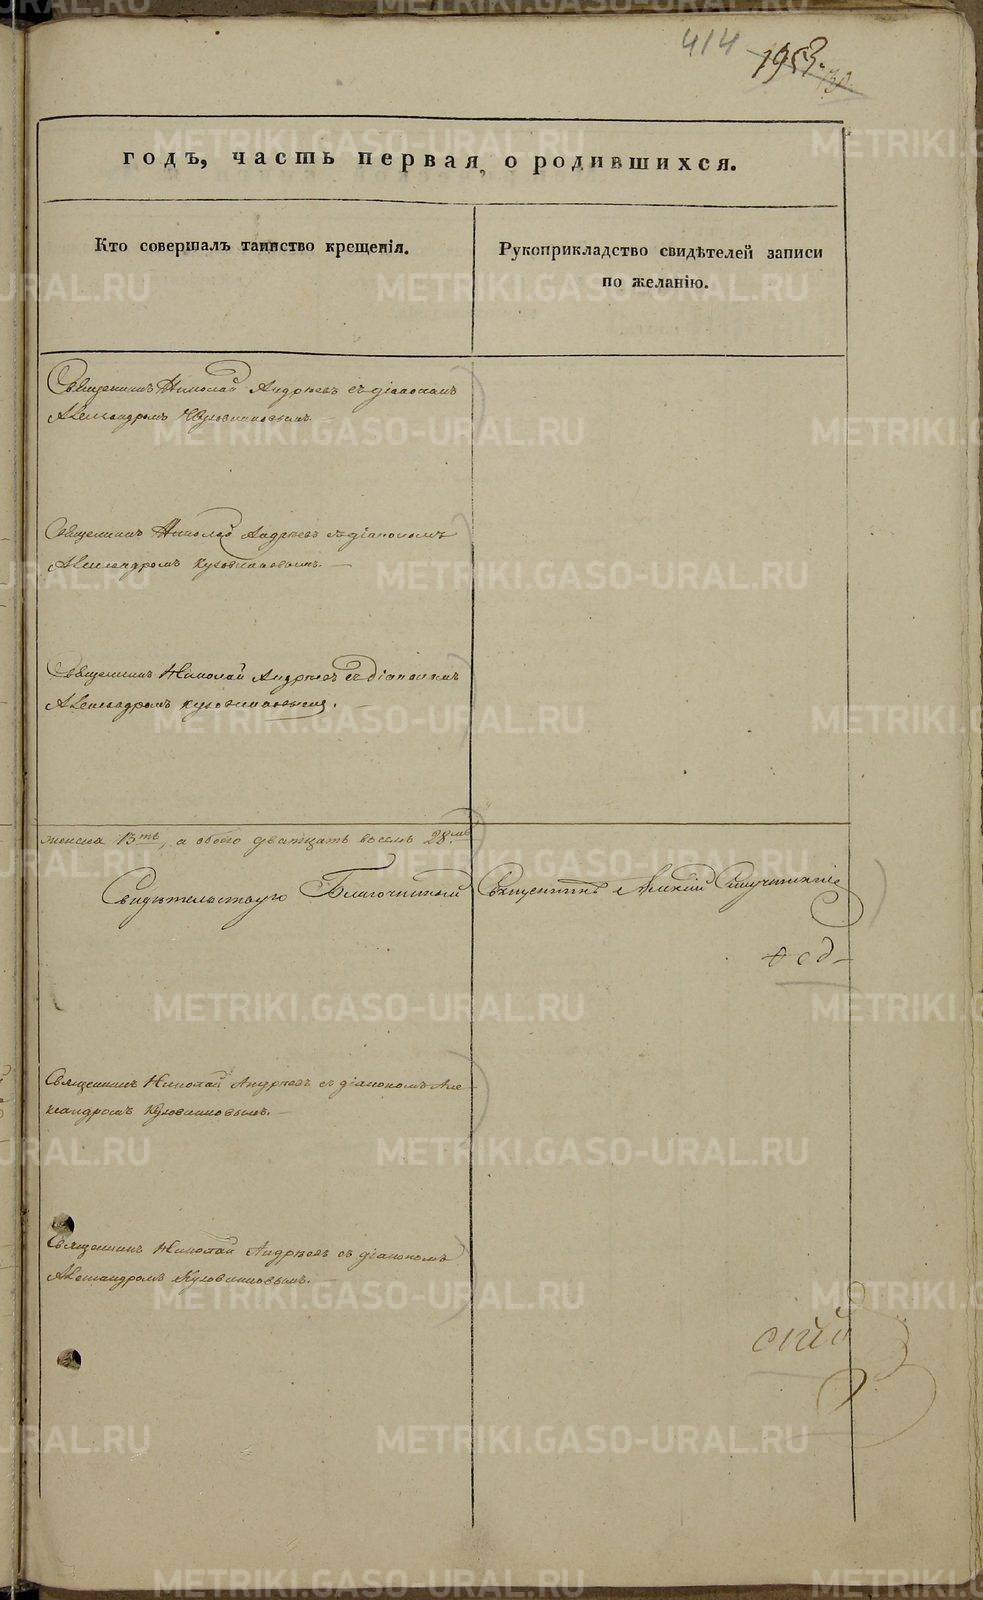 414
годъ, часть первая, о родившихся.
Кто совершалъ таинство крещенія.
Рукоприкладство свидѣтелей записи
по желанію.
Священникъ Николай Андреевъ съ діакономъ
Александромъ Кузовниковымъ.
Священникъ Николай Андреевъ съ діакономъ
Александромъ Кузовниковымъ. —
Священникъ Николай Андреевъ съ діакономъ
Александромъ Кузовниковымъ. —
женска 13ть, а обоего двадцать восемь 28мь
Свидѣтельствую Благочинный Священникъ
Священникъ Николай Андреевъ съ діакономъ Але-
ксандромъ Кузовниковымъ. —
Священникъ Николай Андреевъ съ діакономъ
Александромъ Кузовниковымъ.
METRIKI.GASO-URAL.RU